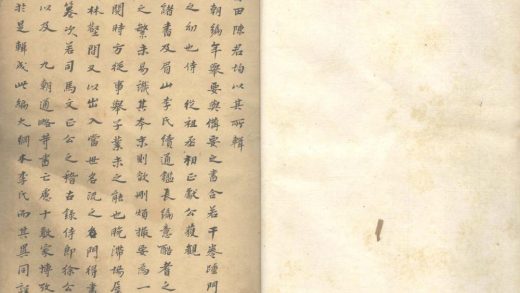 田陳君均以其所輯
朝編年舉要與備要之書合若干卷踵門
之初也侍 從祖丞相正獻公獲觀
諸書及眉山李氏續通鑑長編意酷嗜之
之繁未易識其本末則欲刪煩撮要為一
閱時方從事舉子業未之能也晚滯場屋
林間又以出入當世名流之門得盡
纂次若司馬文正公之稽古錄侍郎徐公
以及 九朝通略等書亡慮十數家博攷
於是輯成此編大綱本李氏而其異同詳